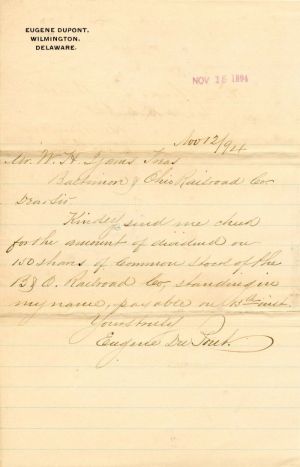 EUGENE DUPONT,
WILMINGTON,
DELAWARE.
NOV 16 1894
Nov 12/94
Mr. W. H. Ijams Treas
Baltimore & Ohio Railroad Co
Dear Sir
Kindly send me check
for the amount of dividend on
150 shares of Common Stock of the
B & O. Railroad Co, standing in
my name, payable on 15th inst.
Yours truly
Eugene Du Pont